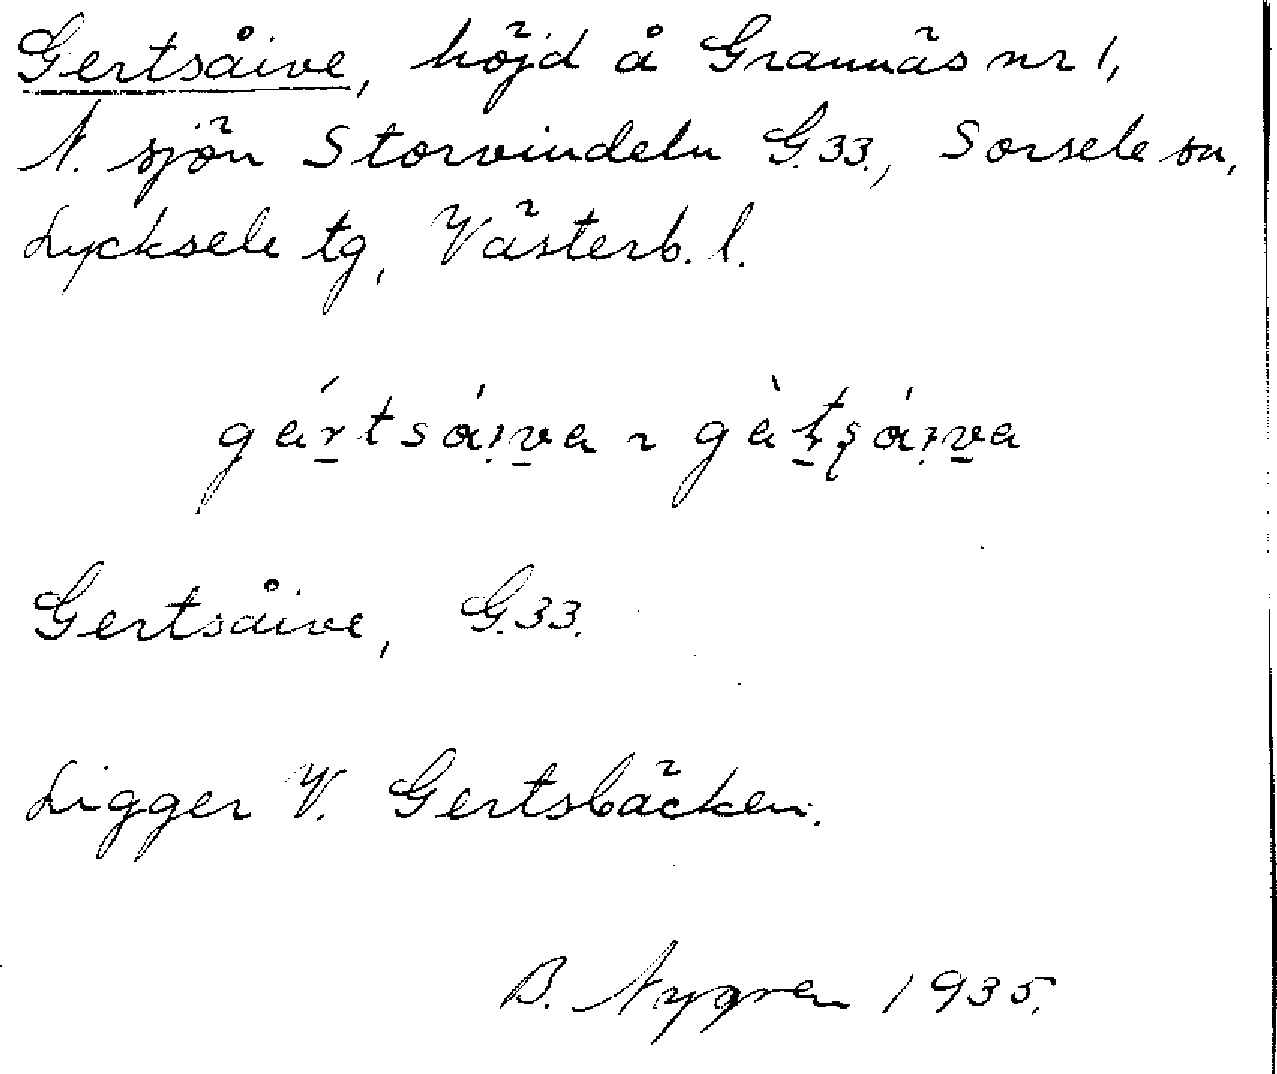 Gertsåive, höjd å Grannäs nr 1,
N. sjön Storvindeln G.33., Sorsele sn,
Lycksele tg, Västerb. l.
Gertsåive, G.33.
Ligger V. Gertsbäcken.
B. Nygren 1935.